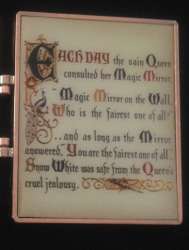 Each day the vain Queen
consulted her Magic Mirror
"Magic Mirror on the Wall
Who is the fairest one of all?
..and as long as the Mirror
answered, "You are the fairest one of all"
Snow White was safe from the Queen's
cruel jealousy.